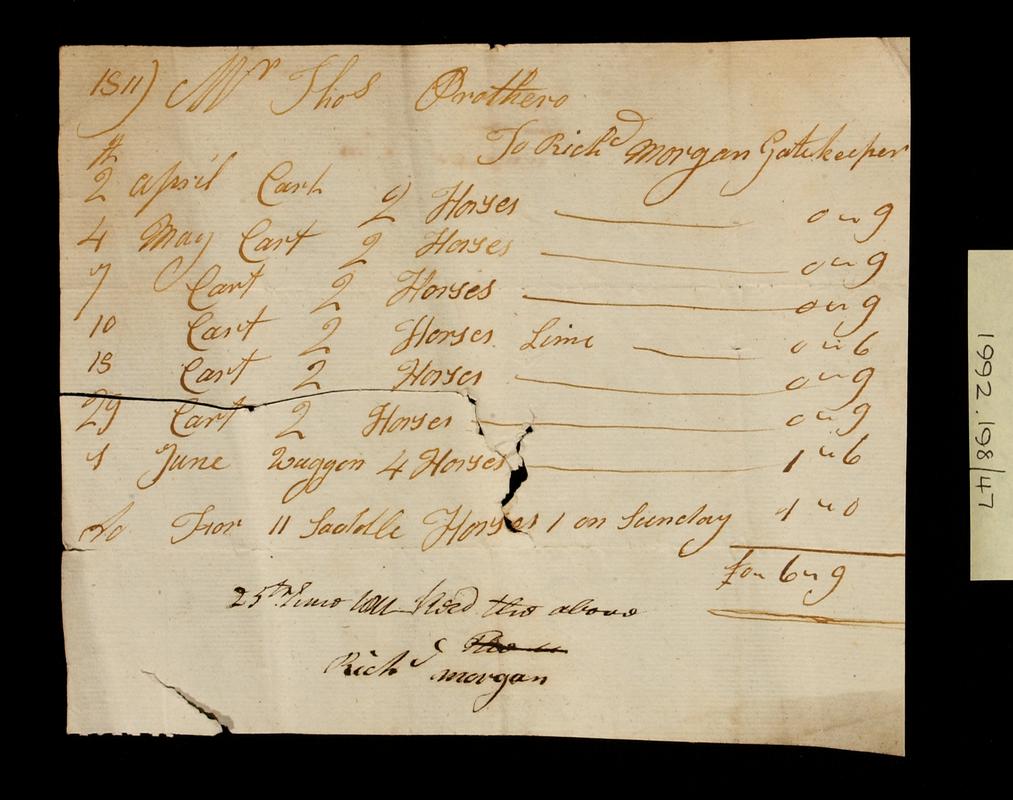 1811) Mr Thos Prothero
To Richd Morgan Gatekeeper
2 April Cart 2 Horses 0 " 9
4 May Cart 2 Horses 0 " 9
7 Cart 2 Horses 0 " 9
10 Cart 2 Horses Lime 0 " 6
18 Cart 2 Horses 0 " 9
29 Cart 2 Horses 0 " 9
June Waggon 4 Horses 1 " 6
Do For 11 Saddle Horses 1 on Sunday 1 " 0
£0 " 6 " 9
25th June the above
Richd Morgan
1992.198/47